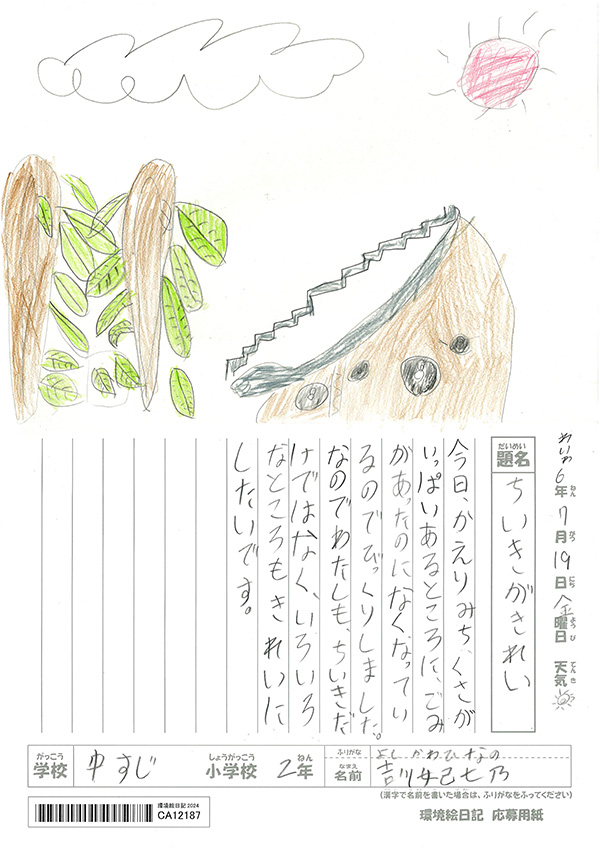 れいわ6年7月19日金曜日 天気
ねん がつ にち ようび てんき
だいめい
題名 ちいきがきれい
今日、かえりみち、くさが
いっぱいあるところに、ごみ
があったのになくなってい
るのでびっくりしました。
なのでわたしも、ちいきだ
けではなく、いろいろ
なところもきれいに
したいです。
がっこう しょうがっこう ねん ふりがな よしかわひなの
学校 中すじ 小学校 2年 なまえ 名前 吉川妃七乃
(漢字で名前を書いた場合は、ふりがなをふってください)
環境絵日記2024
CA12187
環境絵日記 応募用紙